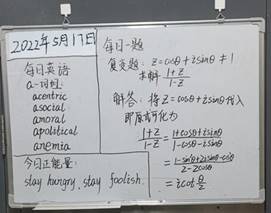 2022年5月17日
每日英语
a-词性:
acentric
asocial
amoral
apolitical
anemia
今日正能量:
stay hungry, stay foolish.
每日一题
复变题: z=cosθ+isinθ≠1
求解 1+z/1-z
解答: 将z=cosθ+isinθ代入
即原式可化为
1+z/1-z = 1+cosθ+isinθ/1-cosθ-isinθ
= 1-sin²θ+2isinθ-cos²θ/2-2cosθ
= icot θ/2